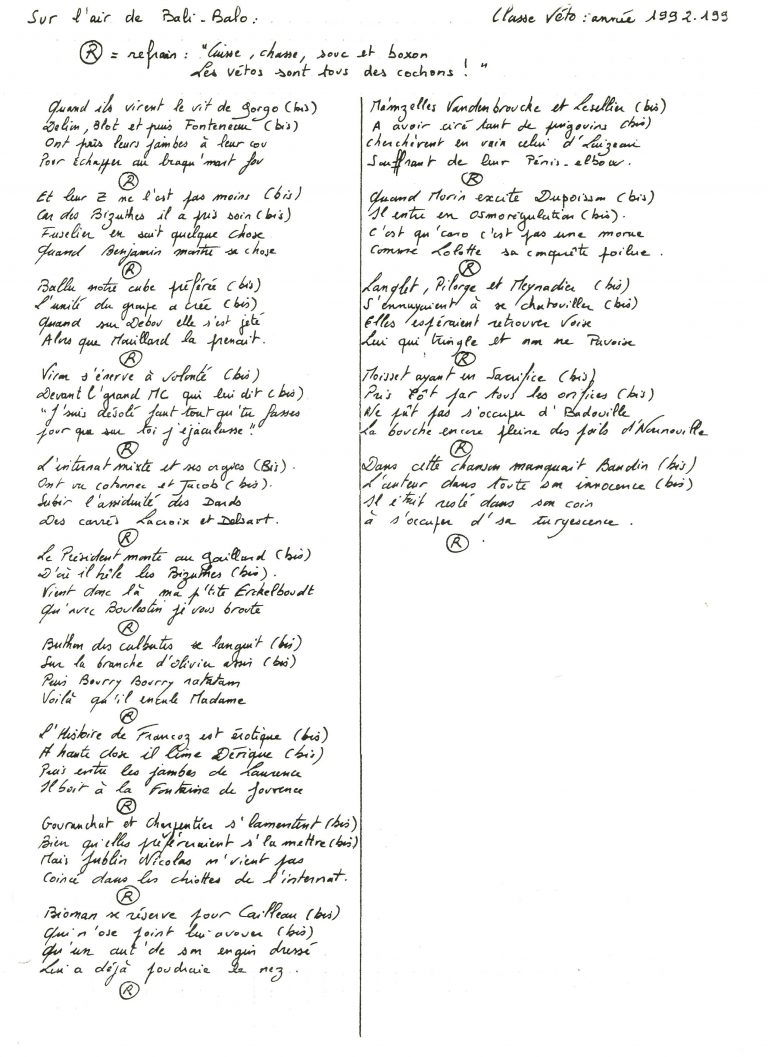 Sur l'air de Bali-Balo:
Classe Véto: année 1992.199
Ⓡ = refrain: "Cuisse, chasse, souc et boxon
Les vétos sont tous des cochons!"
Quand ils virent le vit de Gorgo (bis)
Delim, Blot et puis Fonteneau (bis)
Ont pris leurs jambes à leur cou
Pour échapper au braqu'mart fou
Ⓡ
Et leur Z ne l'est pas moins (bis)
Car des Bizuthes il a pris soin (bis)
Fuselier en sait quelque chose
Quand Benjamin montre se chose
Ⓡ
Ballu notre cube préférée (bis)
L'unité du groupe a créé (bis)
Quand sur Debou elle s'est jeté
Alors que Maillard la prenait.
Ⓡ
Virom s'énerve à volonté (bis)
Devant l'grand MC qui lui dit (bis)
"J'suis désolé faut tout qu'tu fasses
pour que sur toi j'éjaculasse"
Ⓡ
L'internat mixte et ses orgies (Bis).
Ont vu cotonnec et Jacob (bis).
Subir l'assiduité des Dards
Des carrés Lacroix et Delsart.
Ⓡ
Le Président monte au gaillard (bis)
D'où il hèle les Bizuthes (bis).
Vient donc là ma p'tite Erckelboudt
Qu'avec Boulestin je vous broute
Ⓡ
Buthon des culbutes se languit (bis)
Sur la branche d'olivier assis (bis)
Puis Bourry Bourry ratatam
Voilà qu'il encule Madame
Ⓡ
L'Histoire de Francoz est érotique (bis)
A haute dose il lime Dérique (bis)
Puis entre les jambes de Laurence
Il boit à la Fontaine de Jouvence
Ⓡ
Gouranchat et Charpentier s'lamentent (bis)
Bien qu'elles préféreraient s'la mettre (bis)
Mais Jublin Nicolas n'vient pas
Coincé dans les chiottes de l'internat.
Ⓡ
Bioman se réserve pour Cailleau (bis)
Qui n'ose point lui avouer (bis)
Qu'un aut' de son engin dressé
Lui a déjà poudraie le nez.
Ⓡ
Mémzelles Vandenbrouche et Lesellier (bis)
A avoir ciré tant de pingouins (bis)
Cherchèrent en vain celui d'Luizeau
Souffrant de leur Pénis-elbow.
Ⓡ
Quand Morin excite Dupoisson (bis)
Il entre en Osmorégulation (bis).
C'est qu'caro c'est pas une morue
Comme Lolotte sa conquête poilue.
Ⓡ
Langlet, Pilorge et Meynadier (bis)
S'ennuyaient à se chatouiller (bis)
Elles espéraient retrouver Voise
Lui qui tringle et non ne Pavoise
Ⓡ
Moisset ayant en Sacrifice (bis)
Pris Pôt par tous les orifices (bis)
Ne pût pas s'occuper d'Badouville
La bouche encore pleine des poils d'Neunouville
Ⓡ
Dans cette chanson manquait Baudin (bis)
L'auteur dans toute son innocence (bis)
Il était resté dans son coin
à s'occuper d'sa turgescence.
Ⓡ.